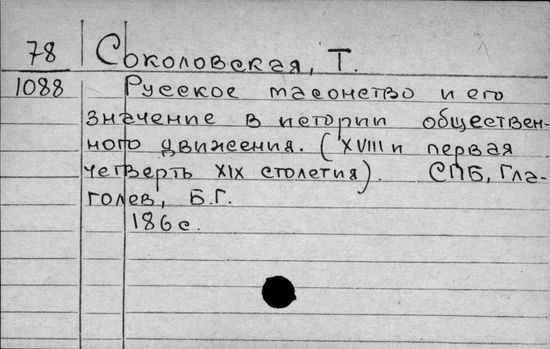 78 Соколовская, Т.
1088 Русское масонство и его
значение в истории обществен-
ного движения. (XVIII и первая
четверть XIX столетия). СПБ, Гла-
голев, Б.Г.
186 с.